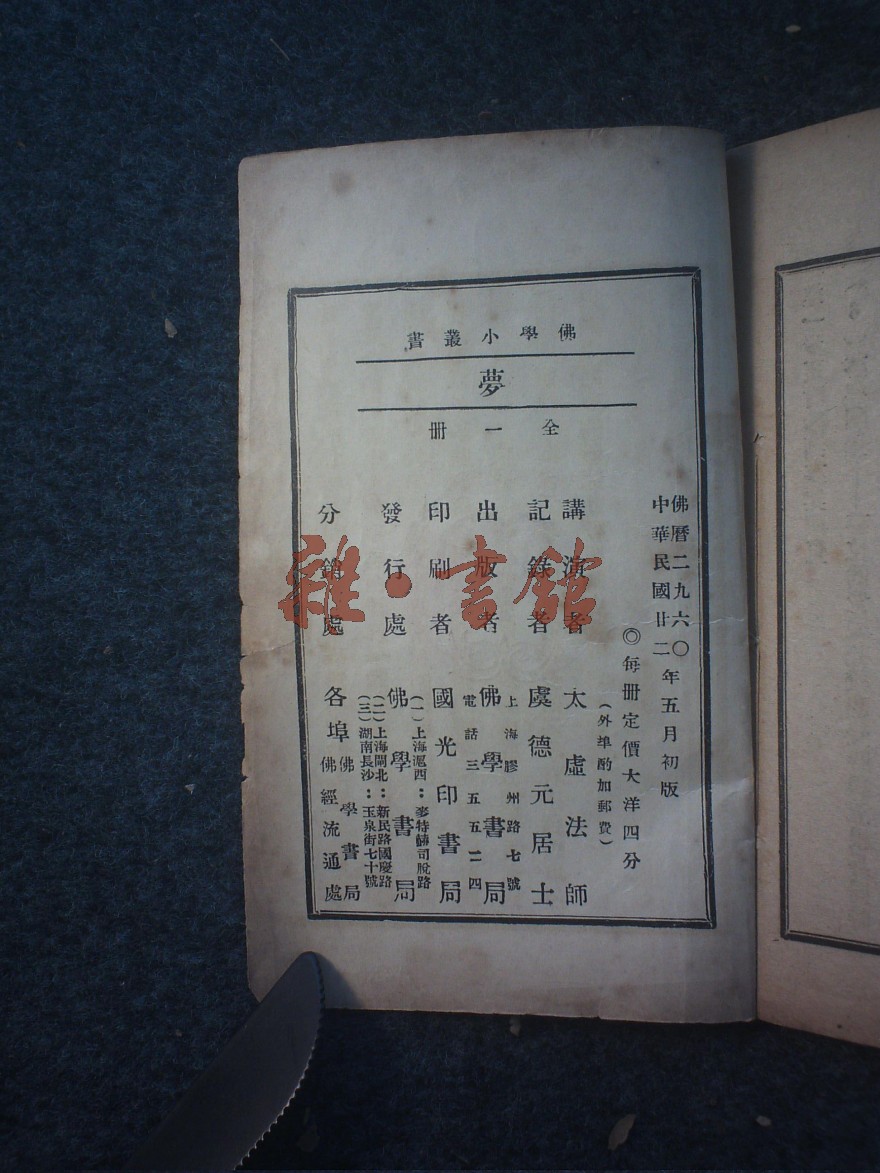 佛學小叢書
夢
全一冊
佛曆二九六〇年五月初版
中華民國廿二
◎每冊定價大洋四分
(外埠酌加郵費)
講演者 太虛法師
記錄者 虞德元居士
出版者 佛學書局
上海膠州路七號
電話三五五二四
印刷者 國光印書局
發行處 佛學書局
(一)上海滬西:麥特赫司脫路
(二)上海閘北:新民路國慶路
(三)湖南長沙:玉泉街七十號
分銷處 各埠佛學書局
佛經流通處
雜·書館